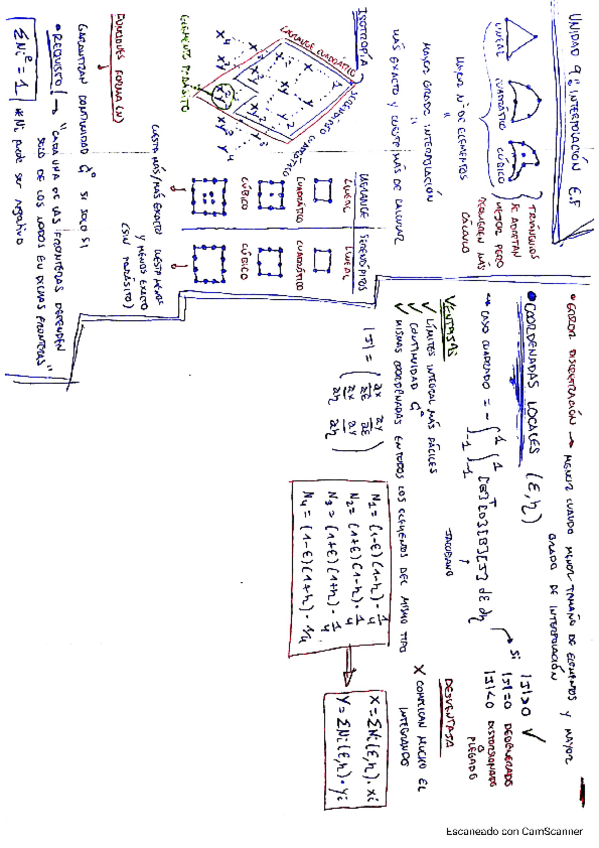 UNIDAD 9: INTERPOLACIÓN E.F
LINEAL
CUADRÁTICO
CÚBICO
TRIÁNGULOS
SE ADAPTAN
MEJOR PERO
REQUIEREN MÁS
CÁLCULO
MENOR Nº DE ELEMENTOS
MAYOR GRADO INTERPOLACIÓN
MÁS EXACTO Y CUESTA MÁS DE CALCULAR
ISOTROPÍA
LAGRANGE CUADRÁTICO
SERENDIPITO CUADRÁTICO
ELEMENTO PARÁSITO
LAGRANGE
LINEAL
CUADRÁTICO
CÚBICO
CUESTA MÁS/MÁS EXACTO
SERENDIPITOS
LINEAL
CUADRÁTICO
CÚBICO
CUESTA MENOS
Y MENOS EXACTO
(SIN PARÁSITO)
FUNCIONES FORMA (N)
GARANTIZAN CONTINUIDAD C⁰ SI SOLO SI
• REQUISITO → "CADA UNA DE LAS FRONTERAS DEPENDEN
SOLO DE LOS NODOS EN DICHAS FRONTERAS"
ΣNiᵉ = 1
* Ni puede ser negativo
• ERROR DISCRETIZACIÓN → MENOR CUANDO MENOR TAMAÑO DE ELEMENTOS Y MAYOR
GRADO DE INTERPOLACIÓN
• COORDENADAS LOCALES (ξ,η)
→ CASO CUADRADO = ∫₋₁¹ ∫₋₁¹ [B]ᵀ[D][B][J] dξ dη
JACOBIANO
Si
|J|>0 ✓
|J|=0 DEGENERADO
|J|<0 DISTORSIONADO
O
PLEGADO
VENTAJAS
✓ LÍMITES INTEGRAL MÁS FÁCILES
✓ CONTINUIDAD C⁰
✓ MISMAS COORDENADAS EN TODOS LOS ELEMENTOS DEL MISMO TIPO
DESVENTAJA
X COMPLICAN MUCHO EL
INTEGRANDO
|J| = (∂x/∂ξ ∂y/∂ξ
∂x/∂η ∂y/∂η)
N₁ = (1-ξ)(1-η)·1/4
N₂ = (1+ξ)(1-η)·1/4
N₃ = (1+ξ)(1+η)·1/4
N₄ = (1-ξ)(1+η)·1/4
X = ΣNi(ξ,η)·xi
Y = ΣNi(ξ,η)·yi
Escaneado con CamScanner